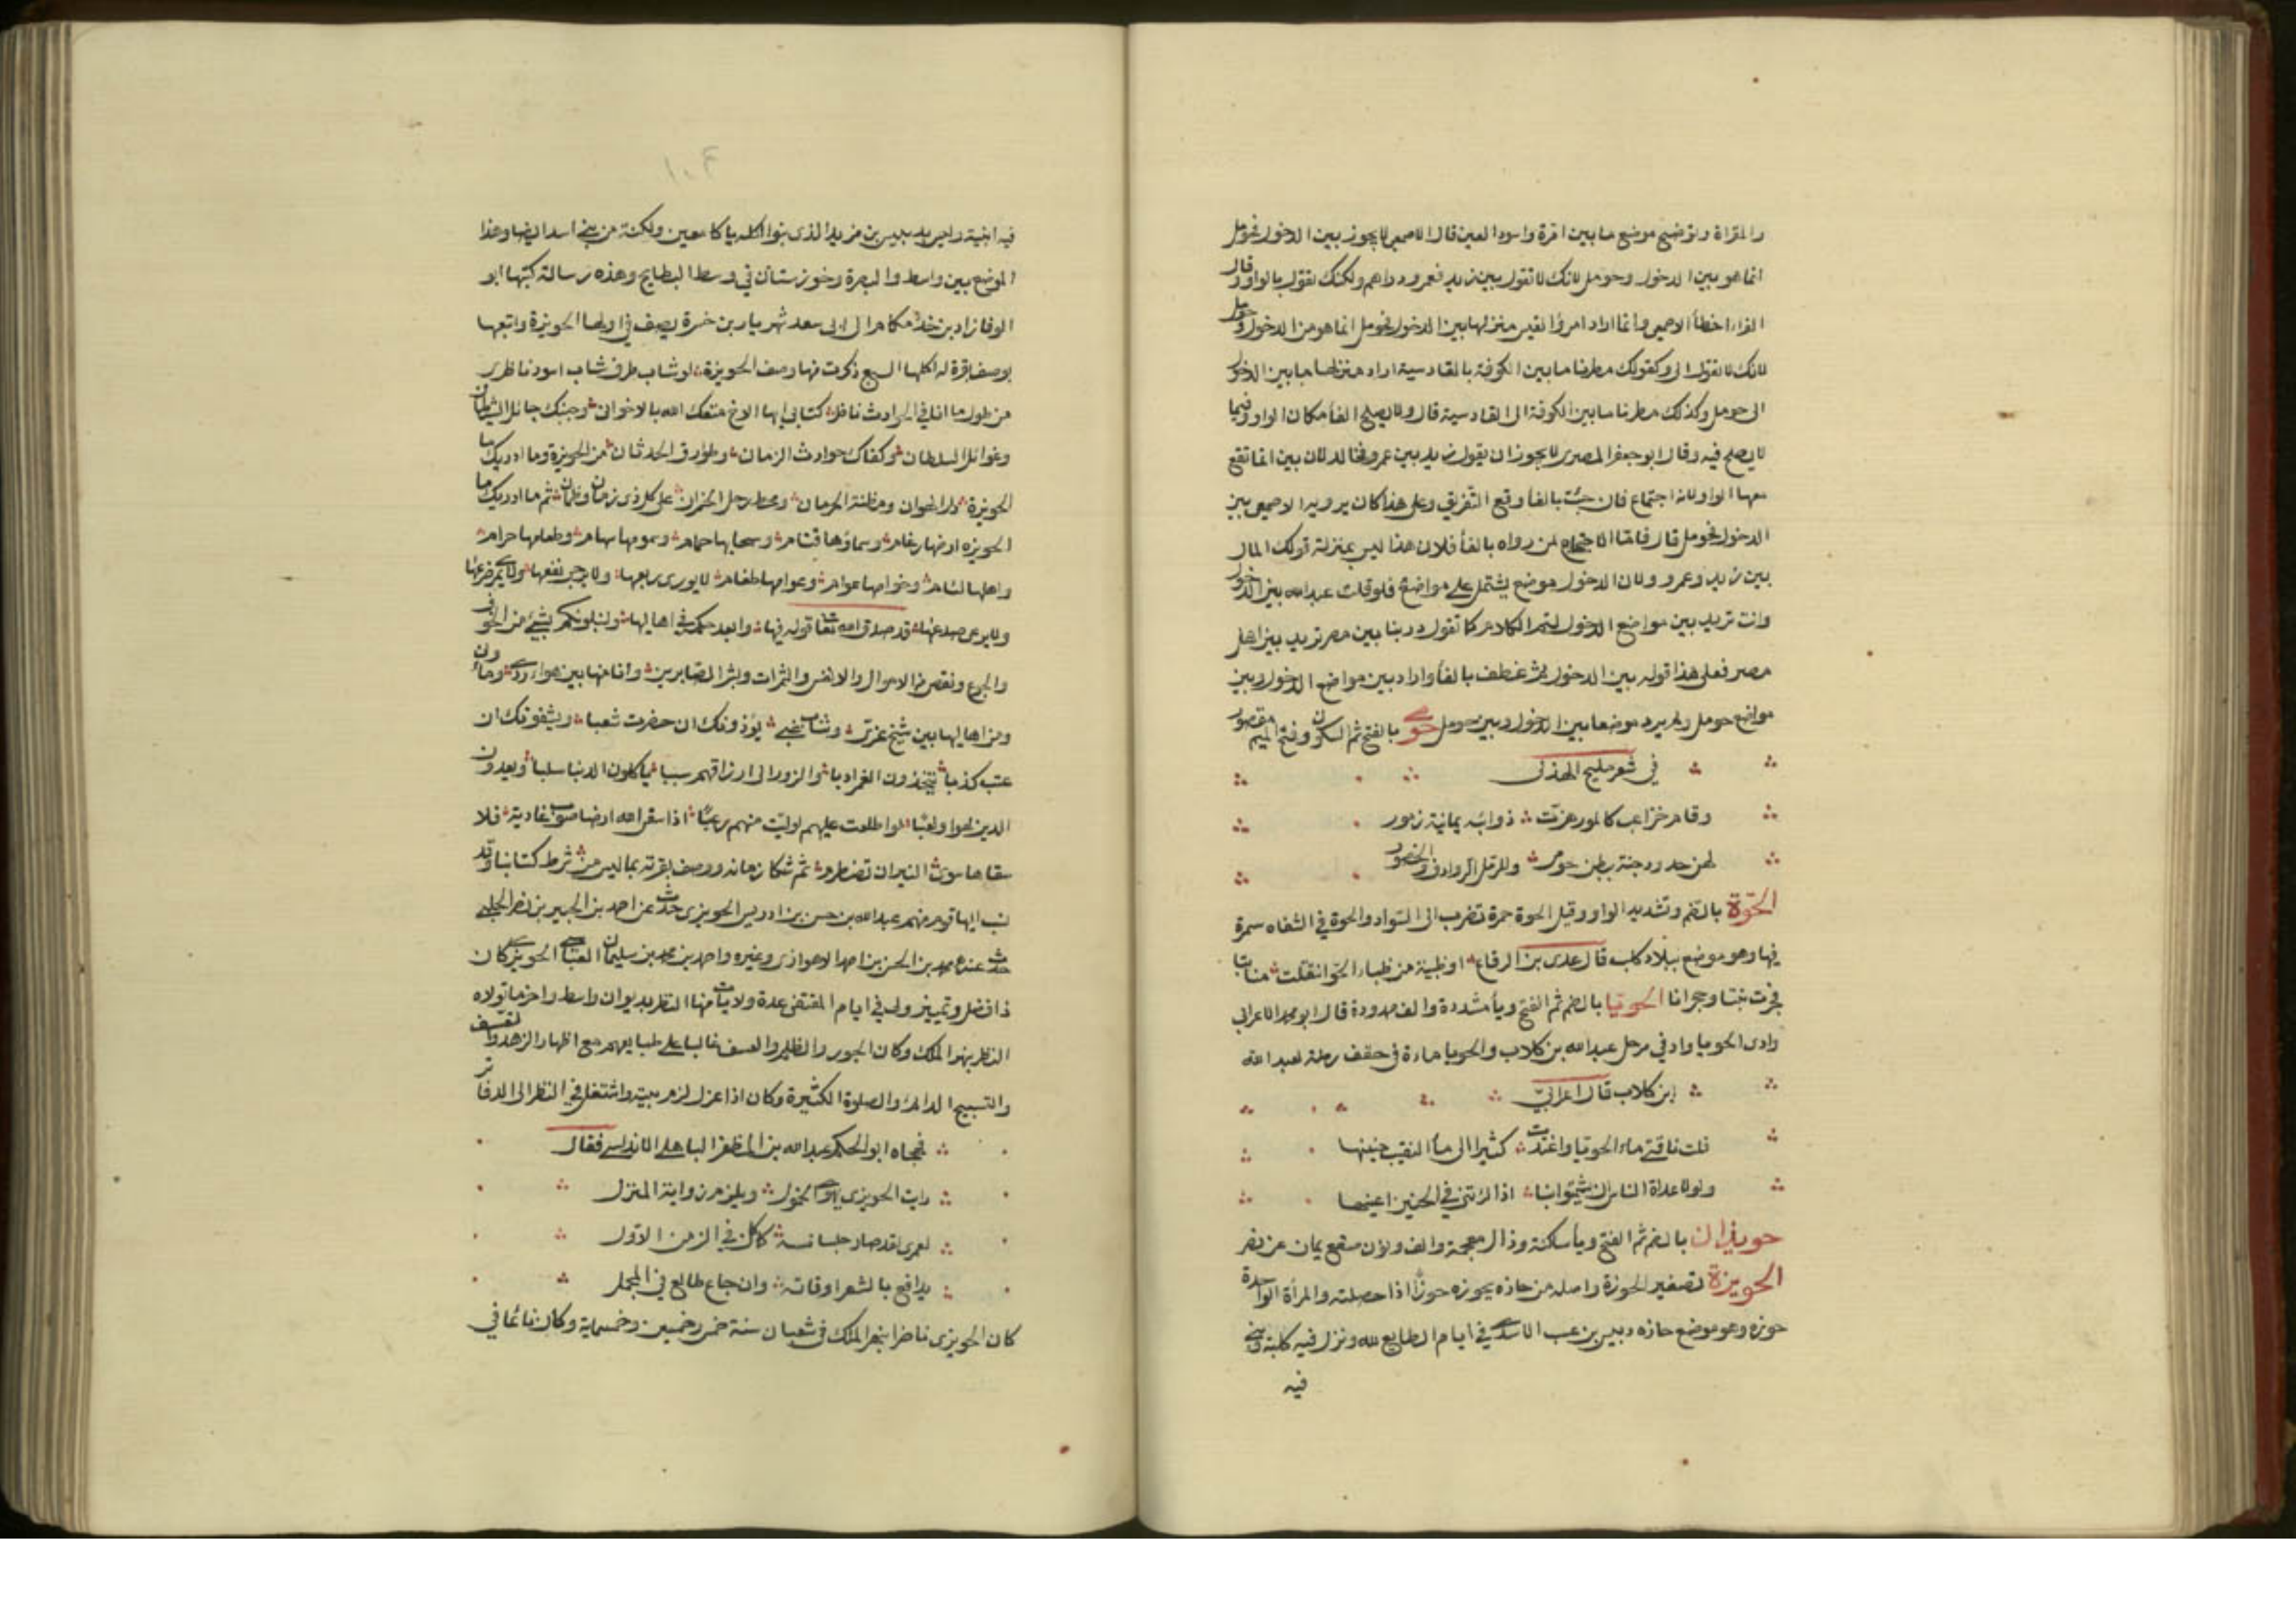 والمقراة وتوضح موضع ما بين امرة واسود العين قال الاصمعي لا يجوز بين الدخول فحومل
انما هو بين الدخول وحومل لانك لا تقول بين زيد فعمرو دراهم ولكنك تقول بالواو وقال
الفرا اخطأ الاصمعي وانما اراد امرؤ القيس منزلها بين الدخول فحومل انما هو من الدخول وحومل
لانك لا تقول الى وكقولك مطرنا ما بين الكوفة بالقادسية اراد منزلها ما بين الدخول
الى حومل وكذلك مطرنا ما بين الكوفة الى القادسية قال ولا يصلح الفا مكان الواو فيما
لا يصلح فيه وقال ابو جعفر المصري لا يجوز ان يقول زيد بين عمرو فخالد لان بين انما تقع
معها الواو لانه اجتماع فان جئت بالفا وقع التفريق وعلى هذا كان يرويه الاصمعي بين
الدخول فحومل قال فاما الاحتجاج لمن رواه بالفأ فلان هذا ليس بمنزلة قولك المال
بين زيد وعمرو ولان الدخول موضع يشتمل على مواضع فلو قلت عبد الله بين الدخول
وانت تريد بين مواضع الدخول لتم الكلام كما تقول دربنا بين مصر تريد بين اهل
مصر فعلى هذا قوله بين الدخول ثم عطف بالفأ واراد بين مواضع الدخول وبين
مواضع حومل ولم يرد موضعا بين الدخول وبين حومل حومى بالفتح ثم السكون وفتح الميم مقصور
في شعر مليح الهذلى
وقام خراعب كالمور هزت ذوائبه يمانية زحور
لهن خدود جنة بطن حومى وللرمل الروادف والخصور
الحوة بالضم وتشديد الواو وقيل الحوة حمرة تضرب الى السواد والحوة في الشفاه سمرة
فيها وهو موضع ببلاد كلب قال عدى بن الرقاع او ظبية من ظباء الحوا انتقلت منابتا
فجرت نبتا وحجرانا الحويا بالضم ثم الفتح ويأ مشددة والف ممدودة قال ابو محمد الاعرابى
وادى الحويا واد في رمل عبد الله بن كلاب والحويا ماءة في حقف رملة لعبد الله
ابن كلاب قال اعرابىّ
قلت ناقتى ماء الحويا واغتدت كثيرا الى مأ النقيب حنينها
ولولا عداة الناس ان يشمتوا بنا اذا لرأتنى في الحنين اعينها
حويذان بالضم ثم الفتح ويأ ساكنة وذال معجمة والف ونون صقع يمان عن نصر
الحويزة تصغير الحوزة واصله من حازه يحوزه حوزًا اذا حصلته والمرأة الواحدة
حوزة وهو موضع حازه دبيس بن عفيف الاسدى في ايام الطايع لله ونزل فيه بحلته وبنى
فيه
١٠٤
فيه ابنية وليس بدبيس بن مزيد الذى بنوا الحلة بالجامعين ولكنه من بنى اسد ايضا وهذا
الموضع بين واسط والبصرة وخوزستان في وسط البطايح وهذه رسالة كتبها ابو
الوفا زاد بن خودكام الى ابى سعد شهريار بن خسرو يصف في اولها الحويزة واتبعها
بوصف بقرة له اكلها السبع ذكرت منها وصف الحويزة لو شاب طرف شاب اسود ناظرى
من طول ما انا في الحوادث ناظر كتابى ايها الاخ متعك الله بالاخوان وجنبك حبائل الشيطان
وغوائل السلطان وكفاك حوادث الزمان وطوارق الحدثان من الحويزة وما ادريك ما
الحويزة دار الهوان ومظنة الحرمان ومحط رحل الخسران على كل ذى زمان وضمان ثم ما ادريك ما
الحويزه ارضها رغام وسماؤها قتام وسحابها جهام وسمومها سهام وطعامها حرام
واهلها لئام وخواصها عوام وعوامها طغام لا يورى ربعها ولا يرجى نفعها ولا يمرى ضرعها
ولا يرعى صدعها قد صدق الله تعا قوله فيها وانفذ حكمه في اهاليها ولنبلونكم بشيء من الخوف
والجوع ونقص من الاموال والانفس والثمرات وبشر الصابرين وانا منها بين هواء ردى وماء
ومن اهاليها بين شيخ غوى وشاب غبى يؤذونك ان حضرت شغبا ويشنفونك ان
غبت كذبا يتخذون الغمز ادبا والزور الى ارزاقهم سببا ياكلون الدنيا سلبا ويعدون
الدين لهوا ولعبًا لو اطلعت عليهم لوليت منهم رعبًا اذا سقى الله ارضا صوب غادية فلا
سقاها سوى النيران تضطرم ثم شكا زمانه ووصف بقرته بما ليس من شرط كتابنا وقد
نسب اليها قوم منهم عبد الله بن حسن بن ادريس الحويزى حدث عن احمد بن الجبير بن نصر الحلبى
حدث عنه محمد بن الحسن بن احمد الاهوازى وغيره واحمد بن محمد بن سليمان العباسى الحويزى كان
ذا فضل وتمييز ولى في ايام المقتفى عدة ولايات منها النظر بديوان واسط واخر ما تولاه
النظر بنهر الملك وكان الجور والظلم والعسف غالبا على طباعهم مع اظهار الزهد والتقشف
والتسبيح الدائم والصلوة الكثيرة وكان اذا عزل لزم بيته واشتغل في النظر الى الدفاتر
فهجاه ابو الحكم عبد الله بن المظفر الباهلى الاندلسى فقال
رايت الحويزى يهوى الخمول ويلزم زواية المنزل
لعمرى لقد صار حلسا له كما كان في الزمن الاوّل
يدافع بالشعر اوقاته وان جاع طالع في المجمل
كان الحويزى ناظرا بنهر الملك في شعبان سنة خمس وخمسين وخمسماية وكان نائما في